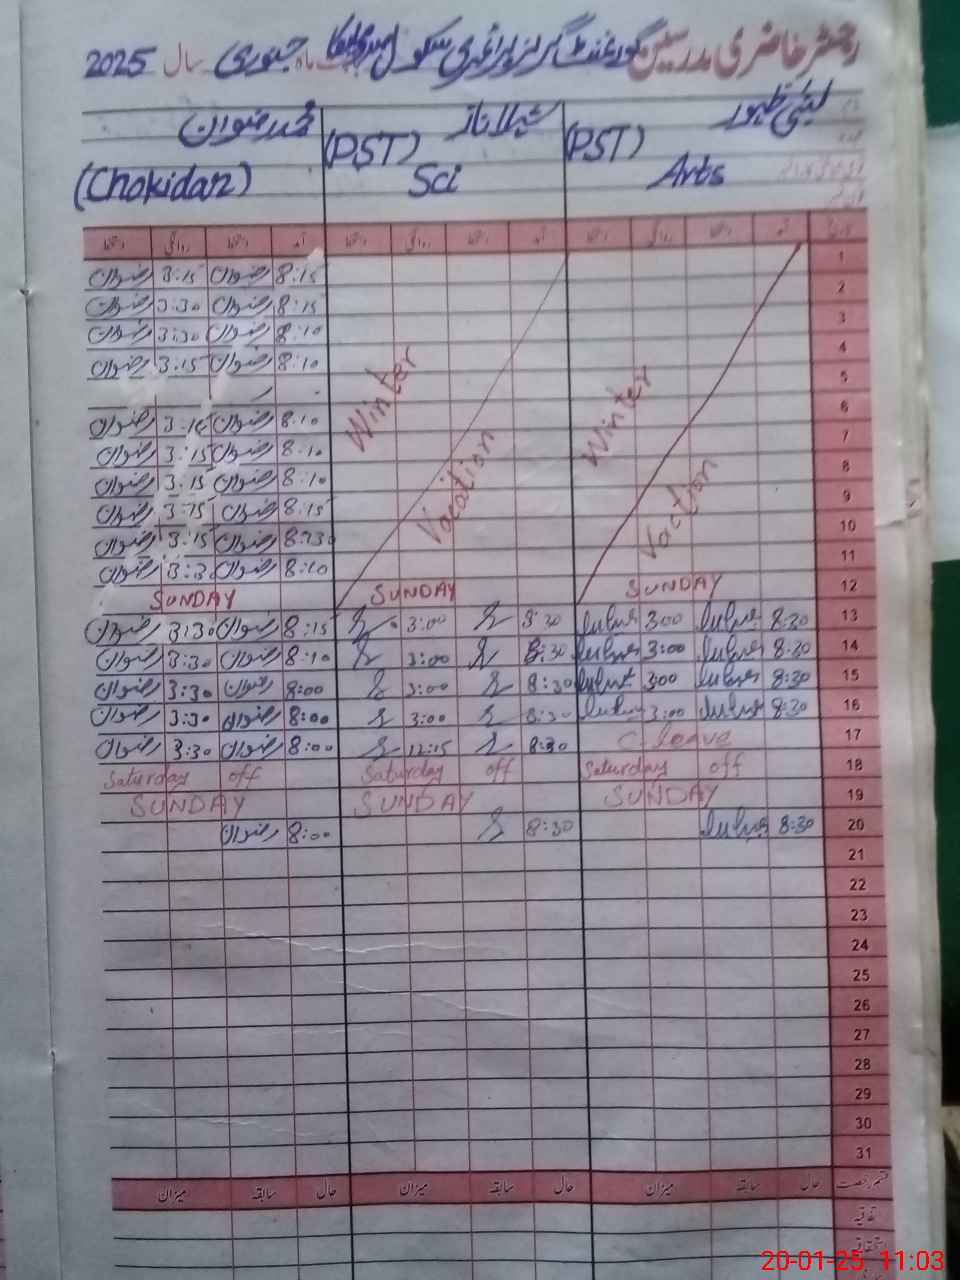 رجسٹر حاضری مدرسین گورنمنٹ گرلز پرائمری سکول ماہ جنوری سال 2025
لبنیٰ ظہور شہلا ناز محمد رضوان
(PST) (PST)
Arts Sci (Chokidar)
تاریخ آمد دستخط روانگی دستخط آمد دستخط روانگی دستخط آمد دستخط روانگی دستخط
1 8:15 رضوان 3:15 رضوان
2 8:15 رضوان 3:30 رضوان
3 8:10 رضوان 3:30 رضوان
4 8:10 رضوان 3:15 رضوان
5
6 8:10 رضوان 3:15 رضوان
7 8:10 رضوان 3:15 رضوان
8 8:10 رضوان 3:15 رضوان
9 8:15 رضوان 3:15 رضوان
10 رضوان 3:15 رضوان
11 8:10 رضوان 3:30 رضوان
Winter Vacation
Winter Vaction
12 SUNDAY SUNDAY SUNDAY
13 8:30 3:00 8:30 3:00 8:15 رضوان 3:30 رضوان
14 8:30 3:00 8:30 3:00 8:10 رضوان 3:30 رضوان
15 8:30 3:00 8:30 3:00 8:00 رضوان 3:30 رضوان
16 8:30 3:00 8:30 3:00 8:00 رضوان 3:30 رضوان
17 C-leave 8:30 12:15 8:00 رضوان 3:30 رضوان
18 Saturday off Saturday off Saturday off
19 SUNDAY SUNDAY SUNDAY
20 8:30 8:30 8:00 رضوان
21
22
23
24
25
26
27
28
29
30
31
قسم رخصت حال سابقہ میزان حال سابقہ میزان حال سابقہ میزان
اتفاقیہ
استحقاقیہ
20-01-25 11:03